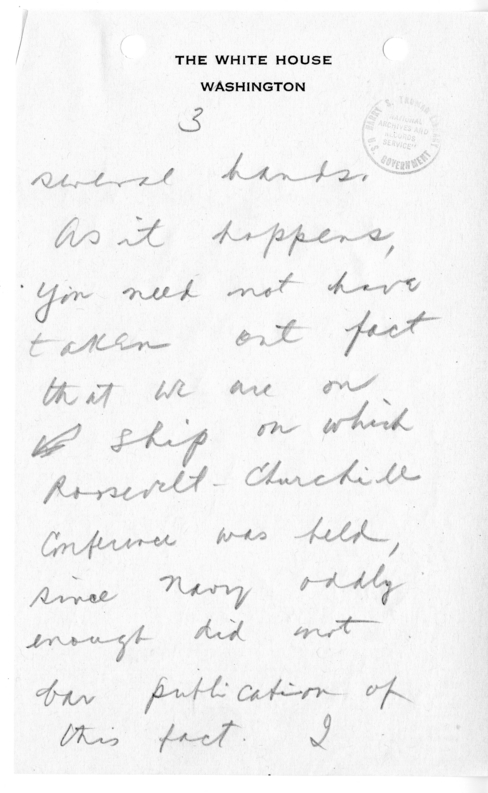 THE WHITE HOUSE
WASHINGTON
3
HARRY S. TRUMAN LIBRARY
"NATIONAL
ARCHIVES AND
RECORDS
SERVICE"
U.S. GOVERNMENT
several hands.
As it happens,
you need not have
taken out fact
that we are on
ship on which
Roosevelt - Churchill
Conference was held,
since Navy oddly
enough did not
bar publication of
this fact. I